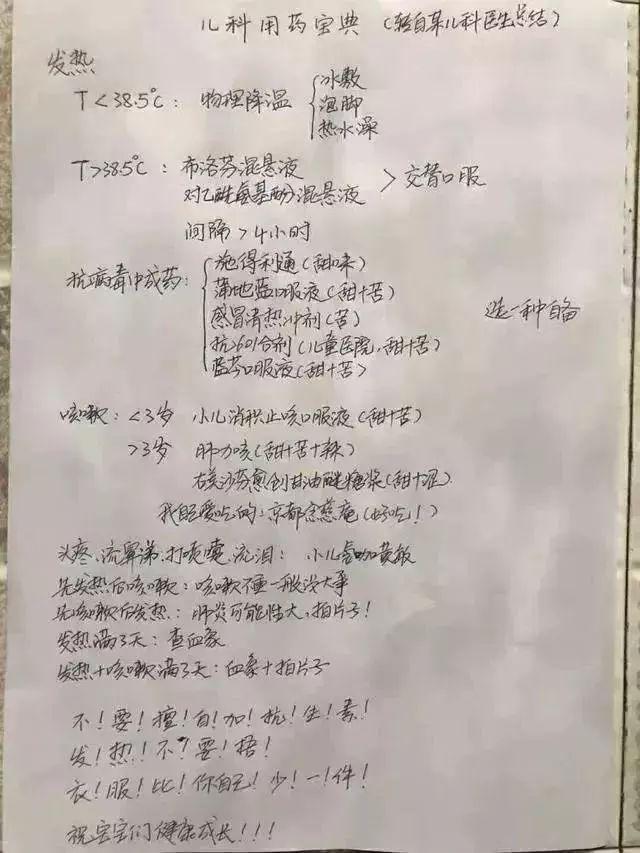 儿科用药宝典(转自某儿科医生总结)
发热
T<38.5℃: 物理降温 { 冰敷
泡脚
热水澡
T>38.5℃: 布洛芬混悬液
对乙酰氨基酚混悬液 > 交替口服
间隔>4小时
抗病毒中成药: { 施得利通(甜味)
蒲地蓝口服液(甜+苦)
感冒清热冲剂(苦) 选一种自备
抗601合剂(儿童医院,甜+苦)
蓝芩口服液(甜+苦)
咳嗽: <3岁 小儿消积止咳口服液(甜+苦)
>3岁 肺力咳(甜+苦+辣)
右美沙芬愈创甘油醚糖浆(甜+涩)
我自己爱吃的:京都念慈庵(好吃!)
头疼、流鼻涕、打喷嚏、流泪: 小儿氨咖黄敏
先发热后咳嗽: 咳嗽不重一般没大事
先咳嗽后发热: 肺炎可能性大,拍片子!
发热满3天: 查血象
发热+咳嗽满3天: 血象+拍片子
不!要!擅!自!加!抗!生!素!
发!热!不!要!捂!
衣!服!比!你自己!少!一!件!
祝宝宝们健康成长!!!